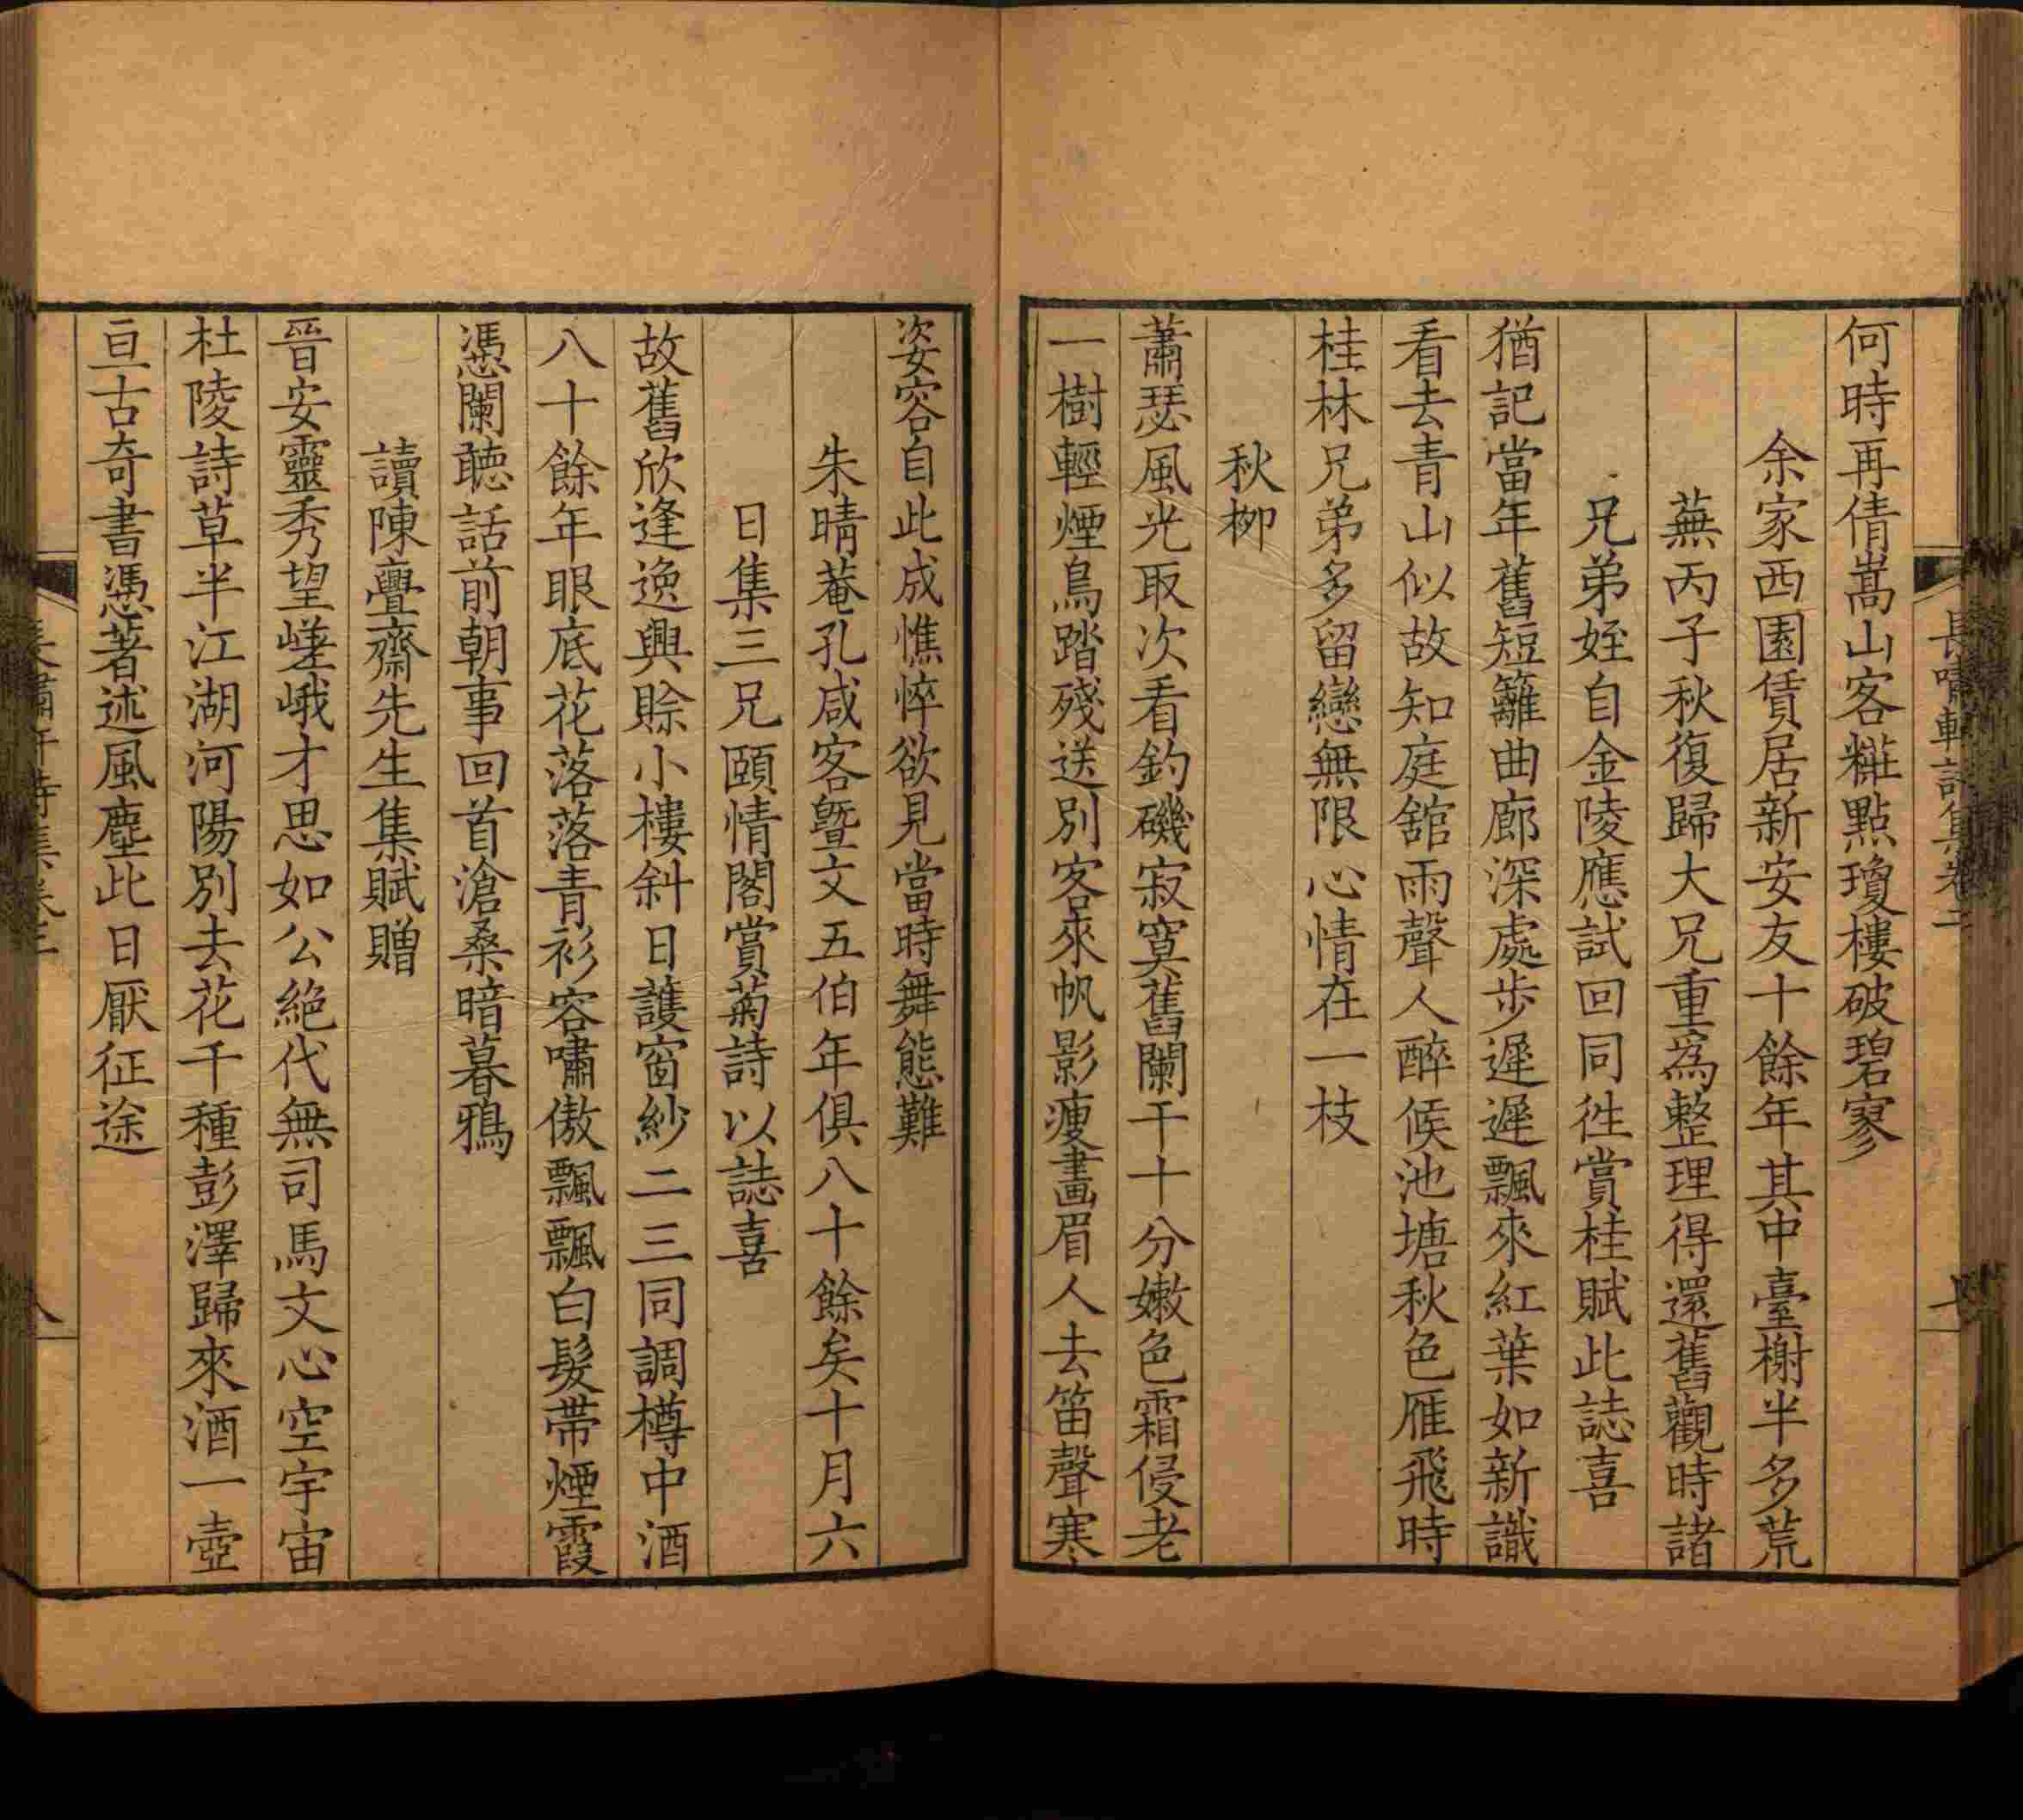 長嘯軒詩集卷二
何時再倩嵩山客糚點瓊樓破碧寥
余家西園賃居新安友十餘年其中臺榭半多荒
蕪丙子秋復歸大兄重為整理得還舊觀時諸
兄弟姪自金陵應試回同徃賞桂賦此誌喜
猶記當年舊短籬曲廊深處步遲遲飄來紅葉如新識
看去青山似故知庭舘雨聲人醉候池塘秋色雁飛時
桂林兄弟多留戀無限心情在一枝
秋栁
蕭瑟風光取次看釣磯寂寞舊闌干十分嫩色霜侵老
一樹輕煙鳥踏殘送別客來帆影瘦畫眉人去笛聲寒
姿容自此成憔悴欲見當時舞態難
朱晴菴孔咸客暨文五伯年俱八十餘矣十月六
日集三兄頤情閣賞菊詩以誌喜
故舊欣逢逸興賒小樓斜日護窗紗二三同調樽中酒
八十餘年眼底花落落青衫容嘯傲飄飄白髮帶煙霞
憑闌聽話前朝事回首滄桑暗暮鴉
讀陳疊齋先生集賦贈
晉安靈秀望嵯峨才思如公絕代無司馬文心空宇宙
杜陵詩草半江湖河陽別去花千種彭澤歸來酒一壺
亘古奇書憑著述風塵此日厭征途
詩集卷三
八